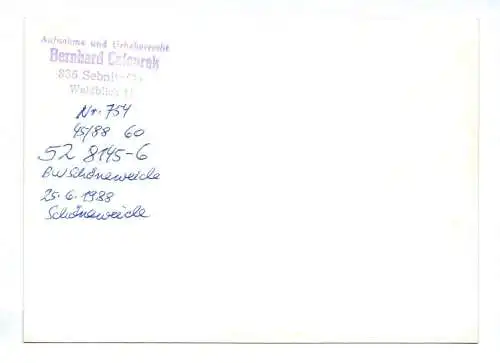 Aufnahme und Urheberrecht
Bernhard
836 Sebnitz
Waldblick
Nr. 754
45/88 60
52 8145-6
BW Schöneweide
25.6.1988
Schöneweide